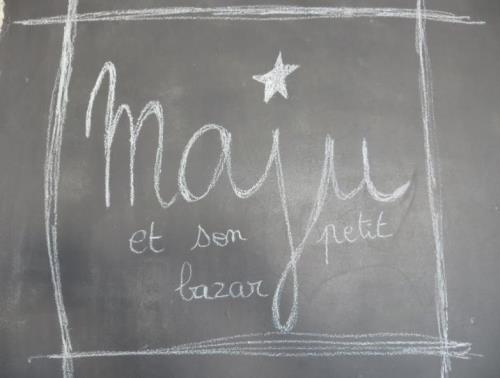 Maju
et son petit
bazar